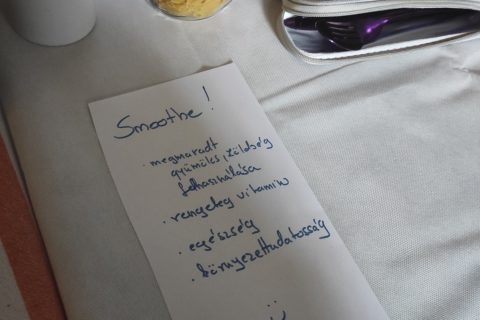 Smoothe!
· megmaradt
gyümölcs, zöldség
felhasználása
· rengeteg vitamin
· egészség
· környezettudatosság